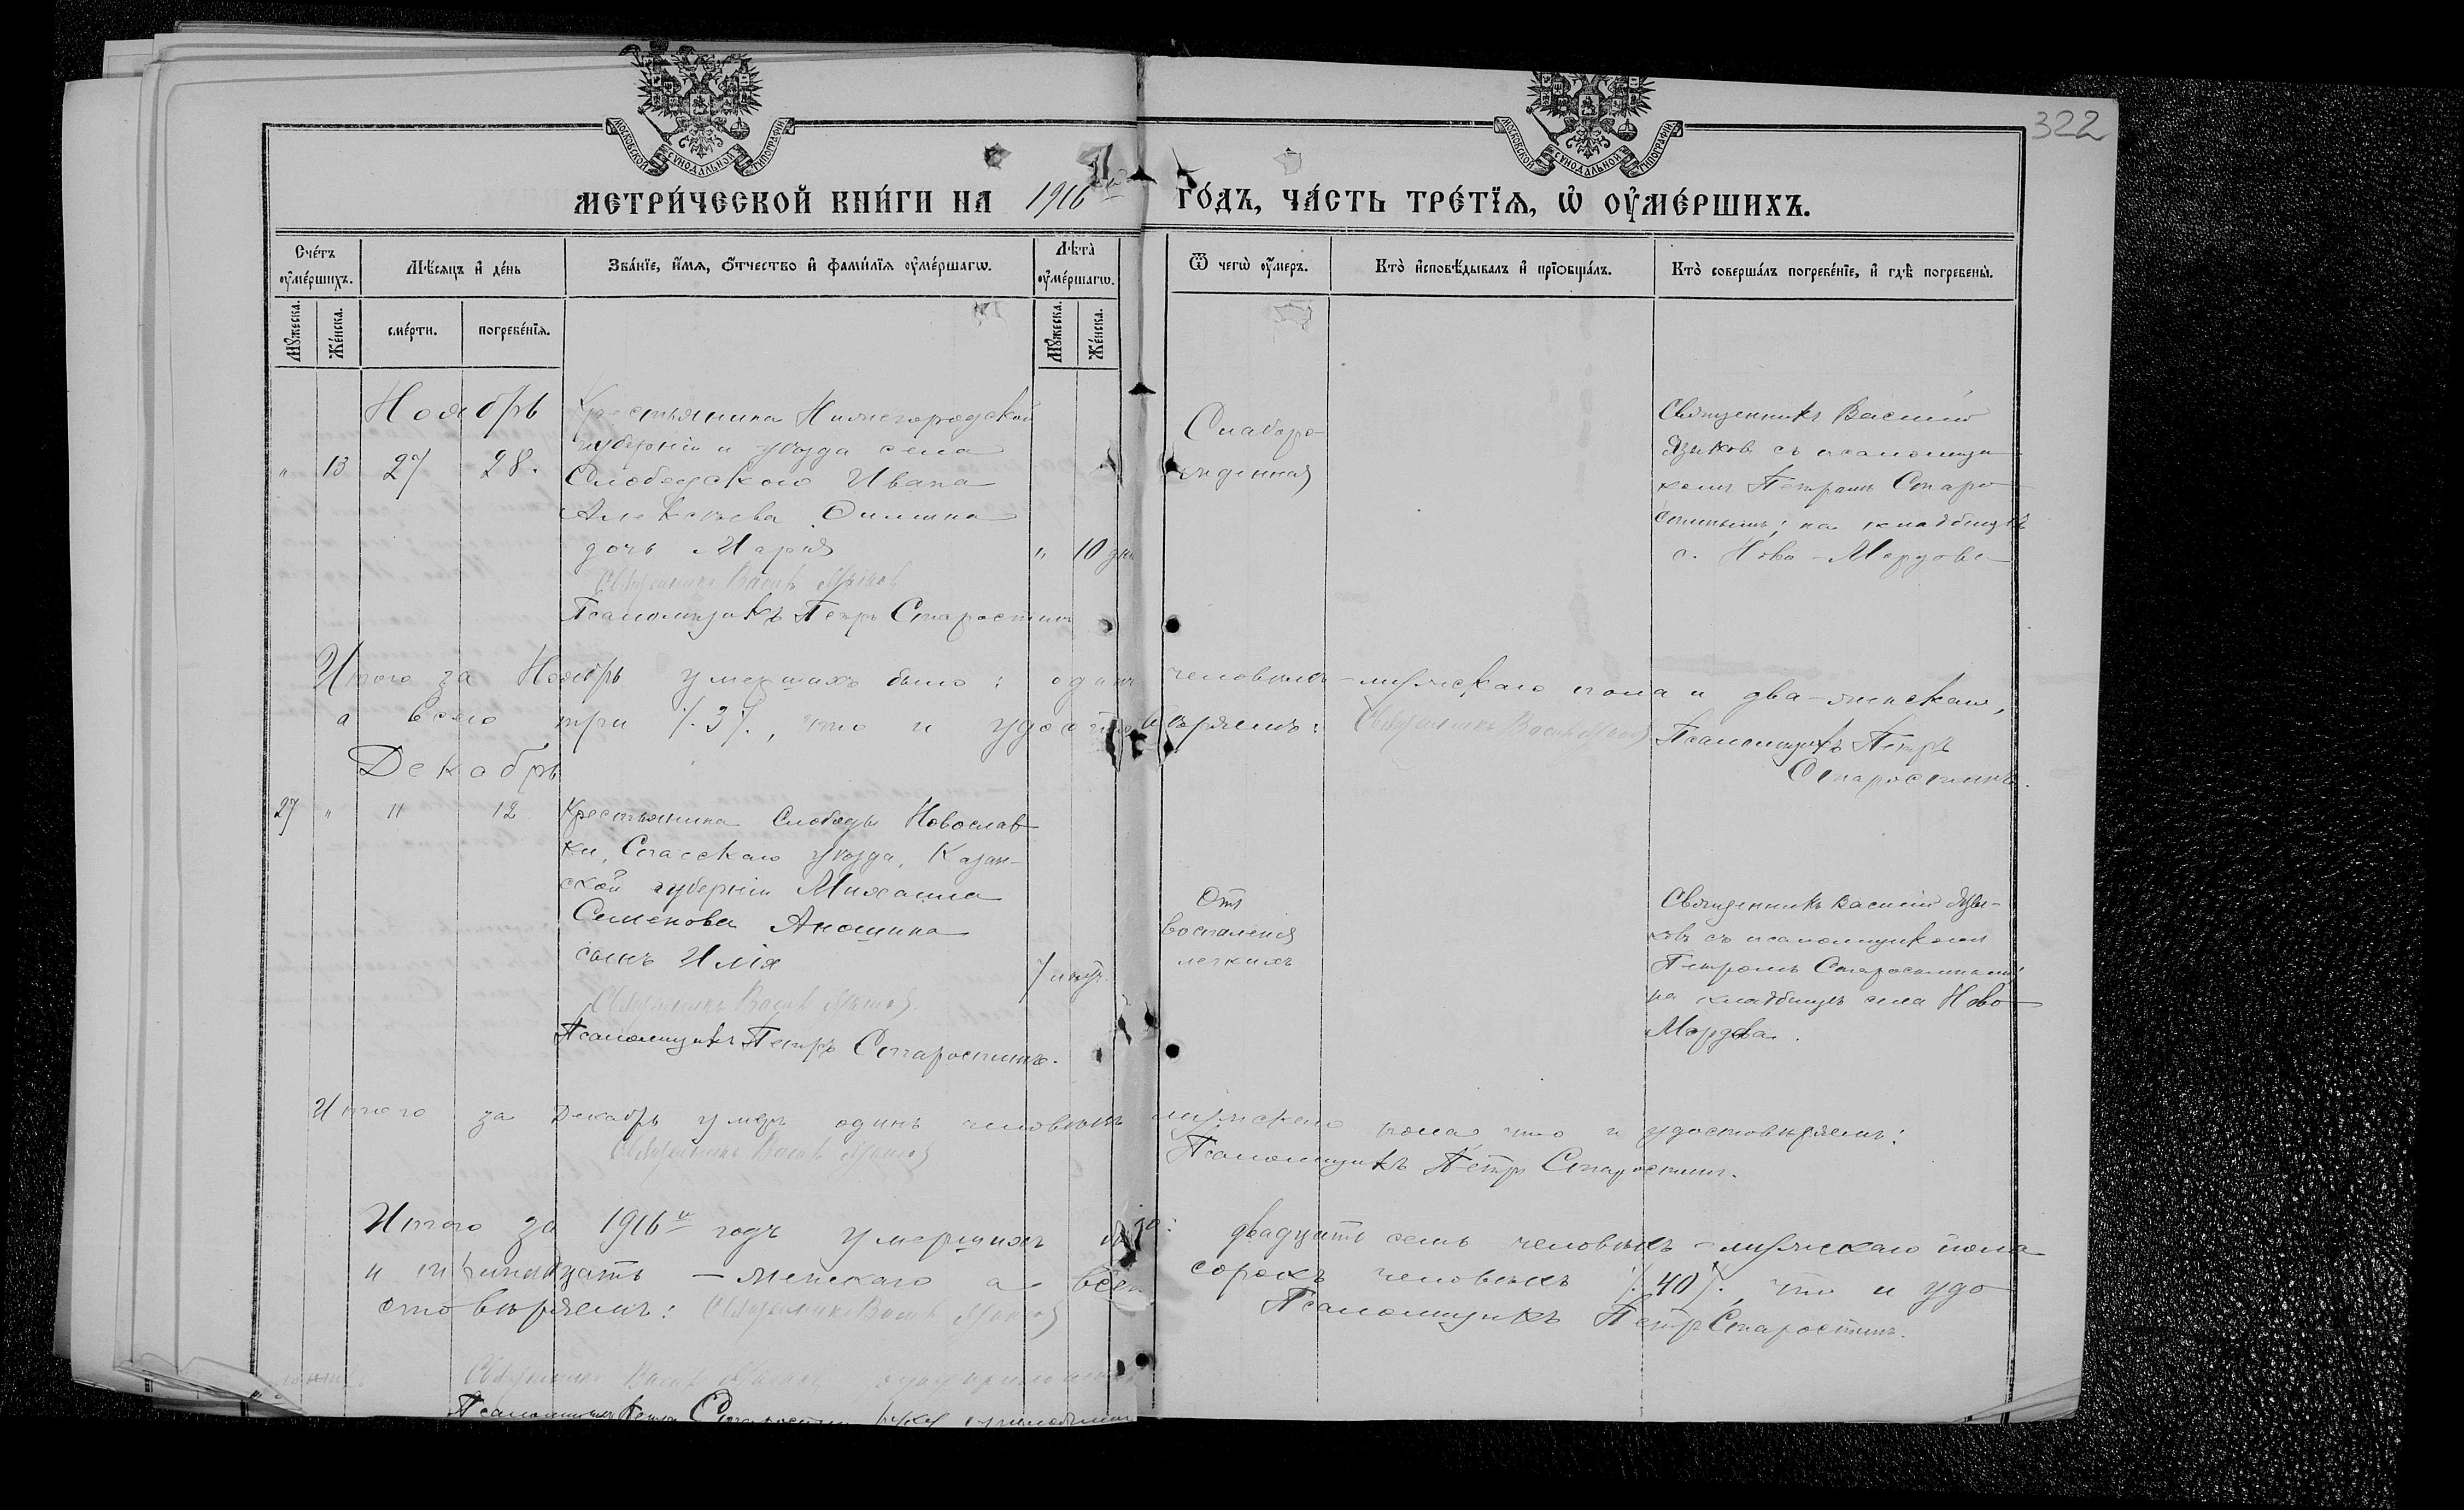 322
МОСКОВСКОЙ СѴНОДАЛЬНОЙ ТИПОГРАФІИ
МОСКОВСКОЙ СѴНОДАЛЬНОЙ ТИПОГРАФІИ
МЕТРИ́ЧЕСКОЙ КНИ́ГИ НА 1916й ГО́ДЪ, ЧА́СТЬ ТРЕ́ТЇѦ, Ѡ҆ ОУ҆МЕ́РШИХЪ.
Сче́тъ оу҆ме́ршихъ.
Мѣ́сяцъ и҆ де́нь
Зва́нїе, и҆́мѧ, ѻ҆́тчество и҆ фами́лїѧ оу҆ме́ршагѡ.
Лѣ́та оу҆ме́ршагѡ.
Ѿ чегѡ̀ оу҆́меръ.
Кто̀ и҆сповѣ́дывалъ и҆ прїѻбща́лъ.
Кто̀ соверша́лъ погребе́нїе, и҆ гдѣ̀ погребены̀.
Мꙋ́жеска.
Же́нска.
сме́рти.
погребе́нїѧ.
Мꙋ́жеска.
Же́нска.
Ноябрь
" 13 27 28.
Крестьянина Нижегородской
губерніи и уѣзда села
Слободскаго Ивана
Алексѣева
дочь Марія
" 10 дн
Священникъ Васил Языков
Псаломщикъ Петръ Старостинъ
Слаборо-
жденная
Священникъ Василій
Языковъ съ псаломщи
комъ Петромъ Старо
стинымъ; на кладбищѣ
с. Ново-Мордова
Итого за Ноябрь умершихъ было: одинъ человѣкъ-мужескаго пола и два-женскаго,
а всего три /.3/., что и удостовѣряемъ: Священникъ Васил Языков Псаломщикъ Петръ
Старостинъ.
Декабрь
27 " 11 12
Крестьянина Слободы Новослав-
ки, Спасскаго уѣзда, Казан-
ской губерніи Михаила
Семенова Аношина
сынъ Илія
7 мѣс.
Священникъ Васил Языков.
Псаломщикъ Петръ Старостинъ.
Отъ
воспаленія
легкихъ
Священникъ Василій Язы-
ковъ съ псаломщикомъ
Петромъ Старостинымъ;
на кладбищѣ села Ново-
Мордова.
Итого за Декабрь умеръ одинъ человѣкъ мужескаго пола, что и удостовѣряемъ:
Священникъ Васил Языков Псаломщикъ Петръ Старостинъ.
Итого за 1916й годъ умершихъ было: двадцать семь человѣкъ - мужескаго пола
и тринадцать - женскаго а всего сорокъ человѣкъ /.40/., что и удо
стовѣряемъ: Священникъ Васил Языков Псаломщикъ Петръ Старостинъ.
Священникъ Васил Языков руку приложилъ
Псаломщикъ Петръ Старостинъ руку приложилъ